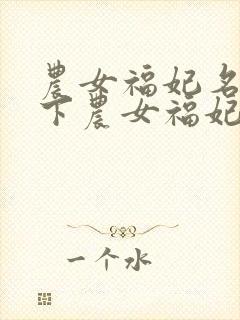 農女福妃名
下農女福妃
一个水